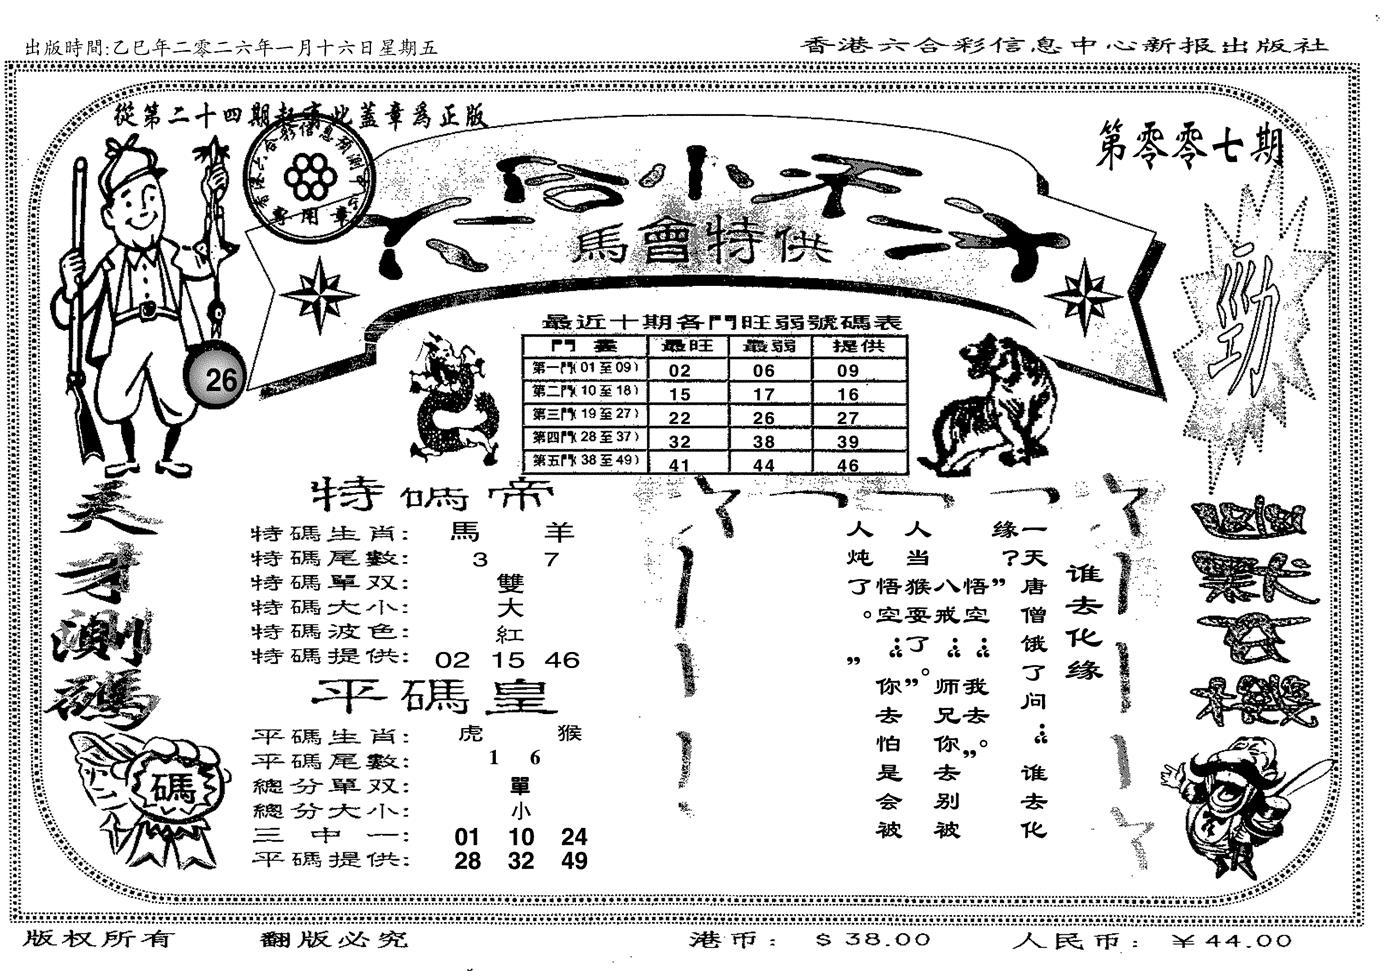 出版時間:乙巳年二零二六年一月十六日星期五
香港六合彩信息中心新报出版社
從第二十四期起有此蓋章爲正版
第零零七期
專用章
馬會特供
勁
26
最近十期各門旺弱號碼表
門 最旺 最弱 提供
第一門(01至09) 02 06 09
第二門(10至18) 15 17 16
第三門(19至27) 22 26 27
第四門(28至37) 32 38 39
第五門(38至49) 41 44 46
天才測碼
特碼帝
特碼生肖: 馬 羊
特碼尾數: 3 7
特碼單双: 雙
特碼大小: 大
特碼波色: 紅
特碼提供: 02 15 46
平碼皇
平碼生肖: 虎 猴
平碼尾數: 1 6
總分單双: 單
總分大小: 小
三中一: 01 10 24
平碼提供: 28 32 49
碼
谁去化缘
一天唐僧饿了问：谁去化
缘？”
悟空：我去”。
八戒：师兄你去别被
人当猴耍了。”
悟空：你去怕是会被
人炖了。”
版权所有
翻版必究
港币：$38.00
人民币：¥44.00